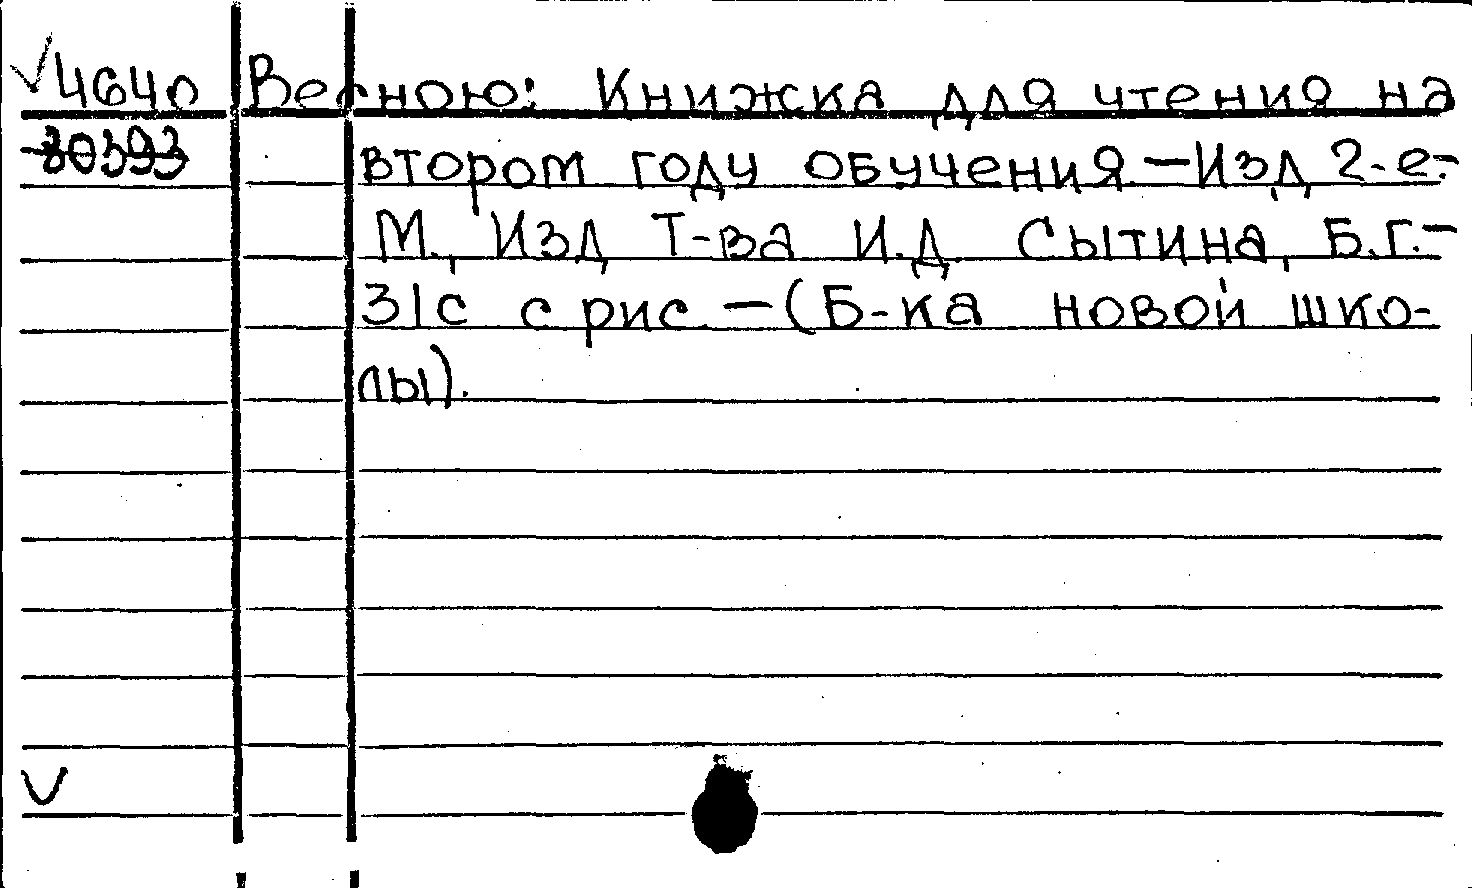 √4640 Весною: Книжка для чтения на
30393 втором году обучения – Изд 2-е.–
М., Изд Т-ва И.Д. Сытина, Б.г.–
31с с рис – (Б-ка новой шко-
лы).
V